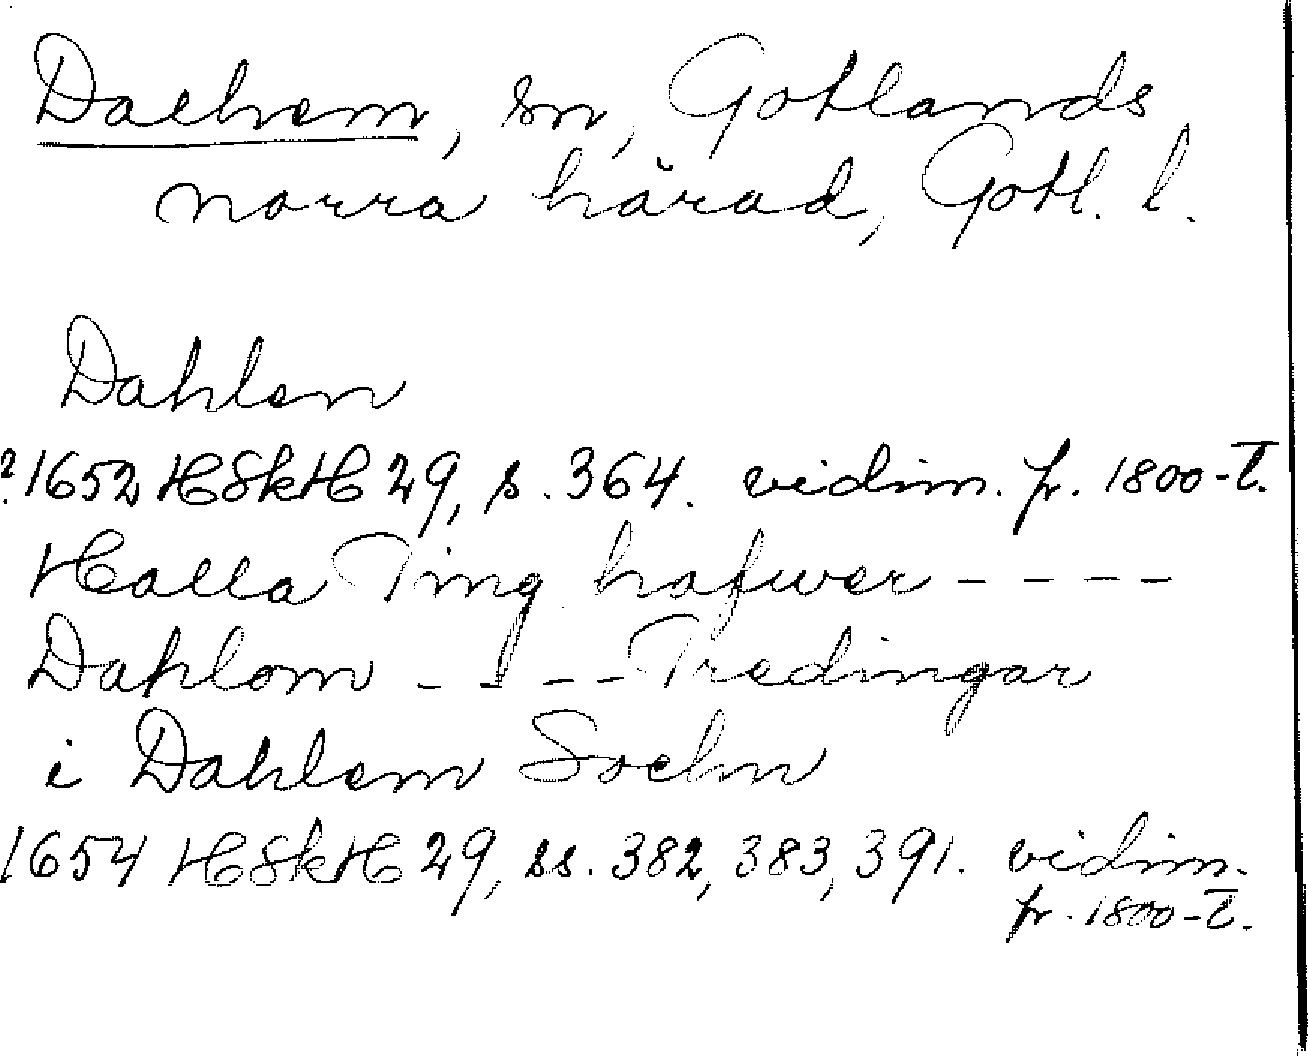 Dalhem, sn, Gotlands
norra härad, Gotl. l.
Dahlen
?1652 HSkH 29, s. 364. vidim. fr. 1800-t.
Halla Ting hafwer - - - -
Dahlom - - - - Tredingar
i Dahlem Sochn
1654 HSkH 29, ss. 382, 383, 391. vidim.
fr. 1800-t.